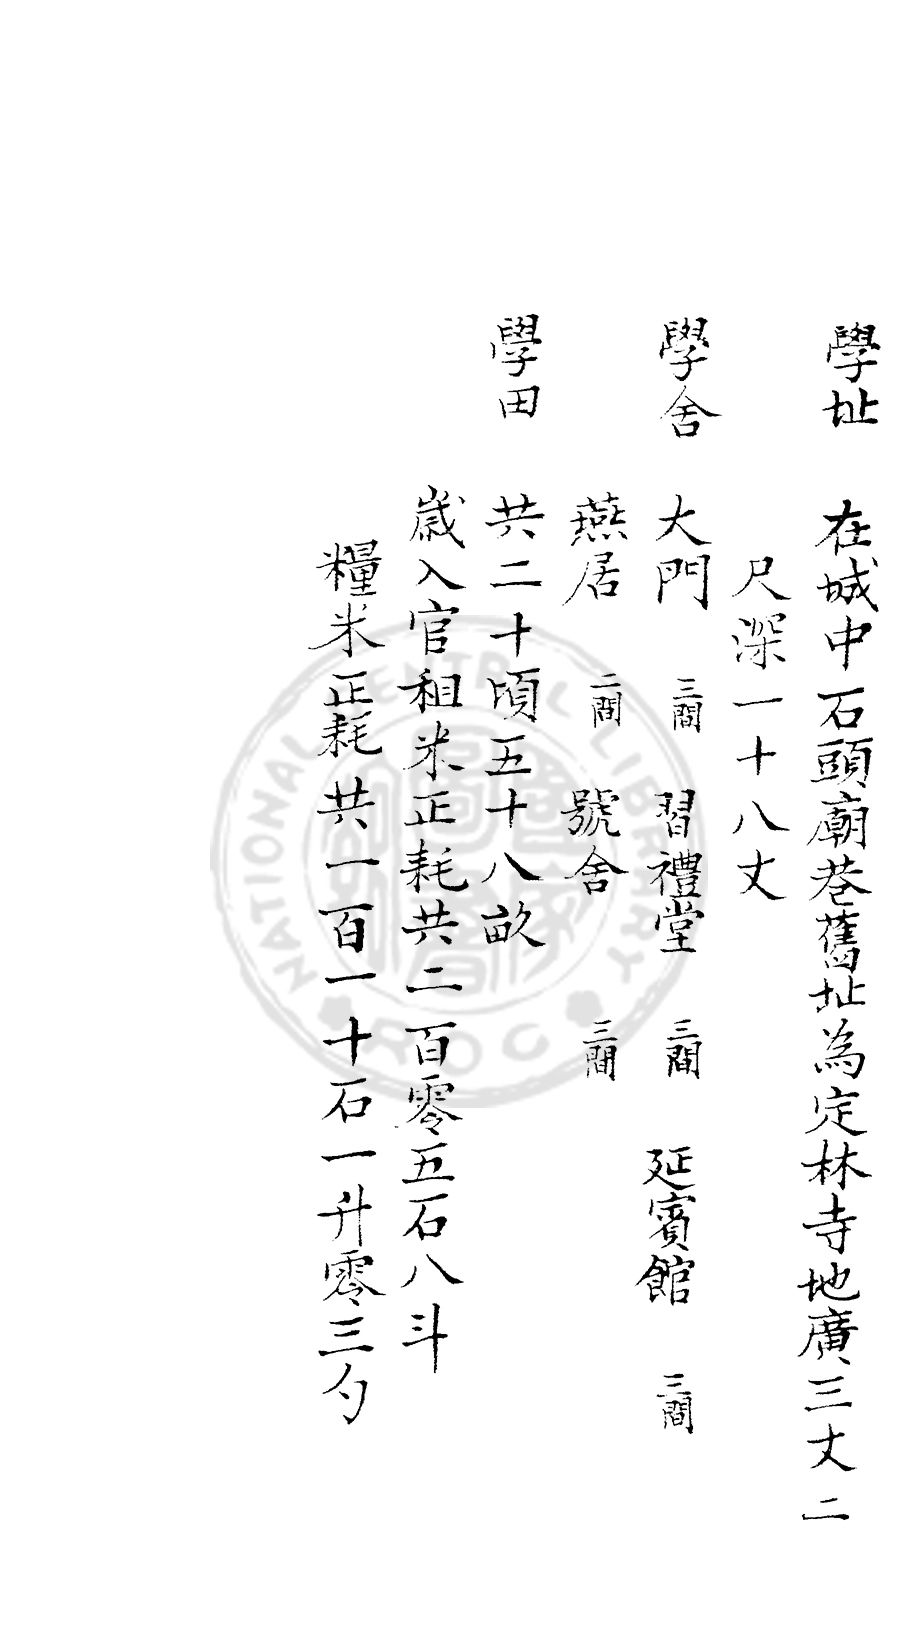 學址 在城中石頭廟巷舊址為定林寺地廣三丈二
尺深一十八丈
學舍 大門 三間 習禮堂 三間 延賓館 三間
燕居 二間 號舍 三間
學田 共二十頃五十八畝
歲入官租米正耗共二百零五石八斗
糧米正耗共一百一十石一升零三勺
NATIONAL CENTRAL LIBRARY
ROC